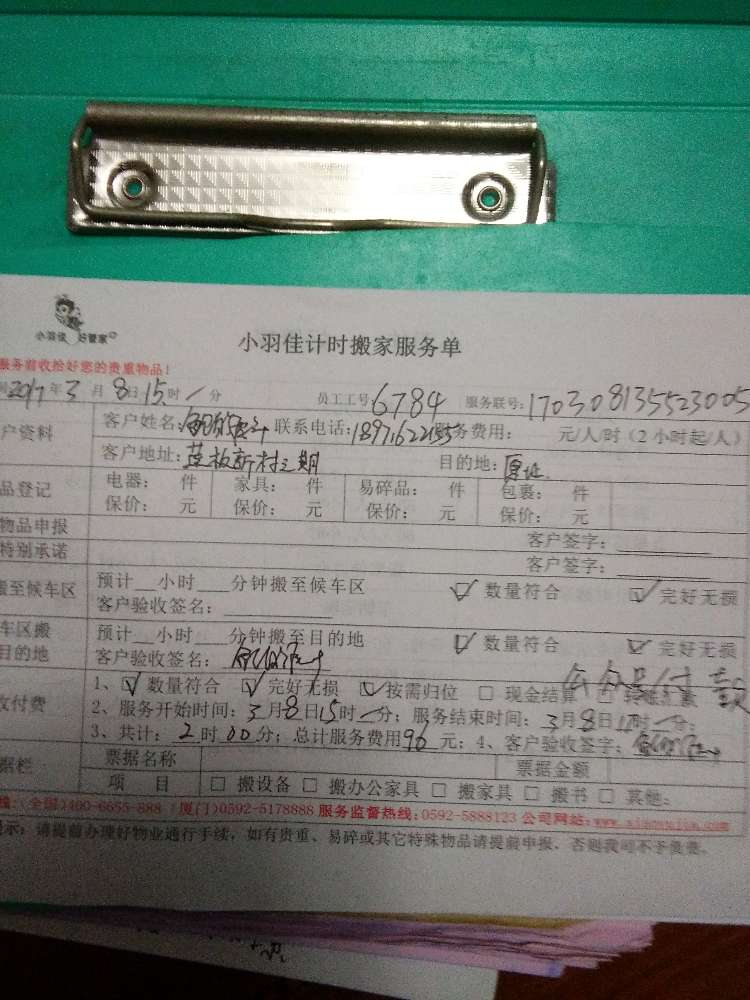 小羽佳 好管家
小羽佳计时搬家服务单
服务前收给好您的贵重物品！
2017年3月8日15时 分 员工工号:6784 服务联号:170308135523005
户资料 客户姓名: 联系电话: 服务费用: 元/人/时（2小时起/人）
客户地址: 新村三期 目的地:原址
品登记 电器: 件 家具: 件 易碎品: 件 包裹: 件
保价: 元 保价: 元 保价: 元 保价: 元
物品申报 客户签字:
特别承诺 客户签字:
搬至候车区 预计__小时___分钟搬至候车区 ☑ 数量符合 ☑ 完好无损
客户验收签名:
车区搬 预计__小时___分钟搬至目的地 ☑ 数量符合 ☑ 完好无损
目的地 客户验收签名:
公众号付款
收付费 1、☑ 数量符合 ☑ 完好无损 ☑ 按需归位 □ 现金结算 □
2、服务开始时间: 3月8日15时 分; 服务结束时间: 3月8日 时 分;
3、共计: 2时00分; 总计服务费用96元; 4、客户验收签字:
据栏 票据名称 票据金额
项 目 □ 搬设备 □ 搬办公家具 □ 搬家具 □ 搬书 □ 其他:
线:(全国)400-6655-888 (厦门)0592-5178888 服务监督热线:0592-5888123 公司网站:
示: 请提前办理好物业通行手续，如有贵重、易碎或其它特殊物品请提前申报，否则我司不予负责。